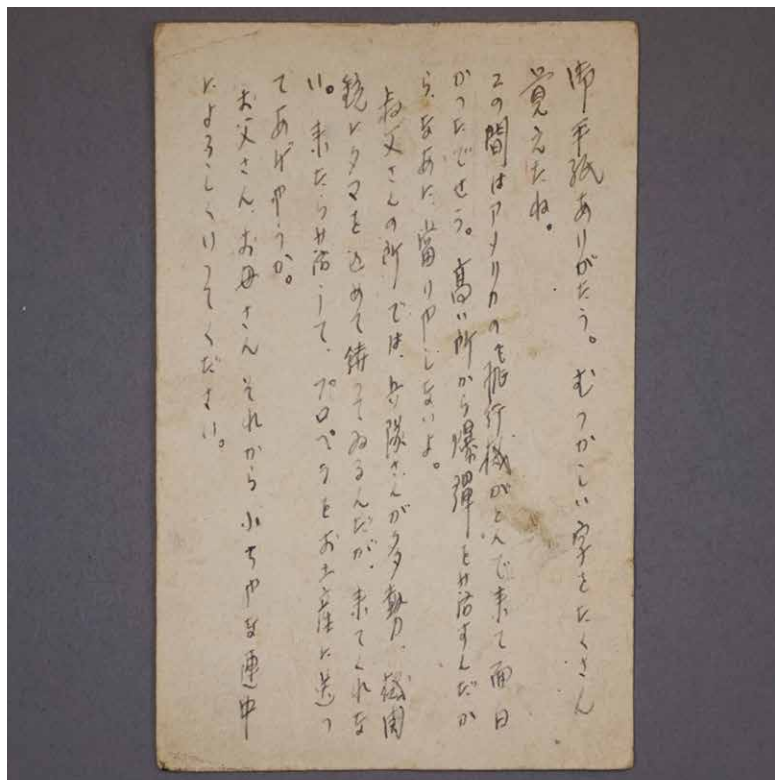 御手紙ありがたう。むつかしい字をたくさん
覚えたね。
この間はアメリカの飛行機がとんで来て面白
かつたでせう。高い所から爆彈を落すんだか
ら、なあに、當りやしないよ。
叔父さんの所では、兵隊さんが多勢、機関
銃にタマを込めて待つてゐるんだが、来てくれな
い。来たら落して、プロペラをお土産に送つ
てあげやうか。
お父さん、お母さん それから 小ちやな連中
によろしくいつてください。